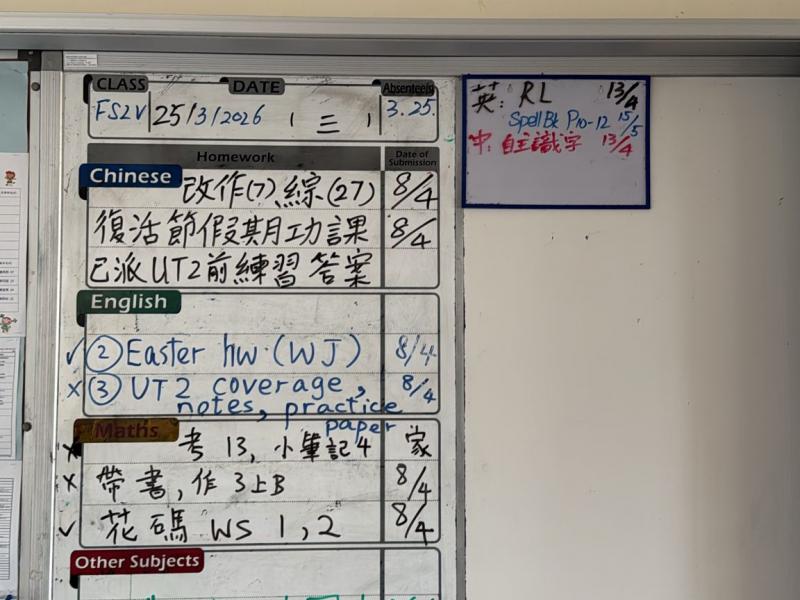 CLASS DATE Absentee(s)
FS2V 25/3/2026 (三) 3.25.
Homework Date of Submission
Chinese 改作(7) 綜(27) 8/4
復活節假期功課 8/4
已派UT2前練習答案
English
✓ ② Easter hw (WJ) 8/4
x ③ UT2 coverage, 8/4
notes, practice
paper
Maths
x 考 13, 小筆記4 家
x 帶書, 作3上B 8/4
✓ 花碼 WS 1, 2 8/4
Other Subjects
英: RL 13/4
Spell Bk P10-12 15/5
中: 自主識字 13/4